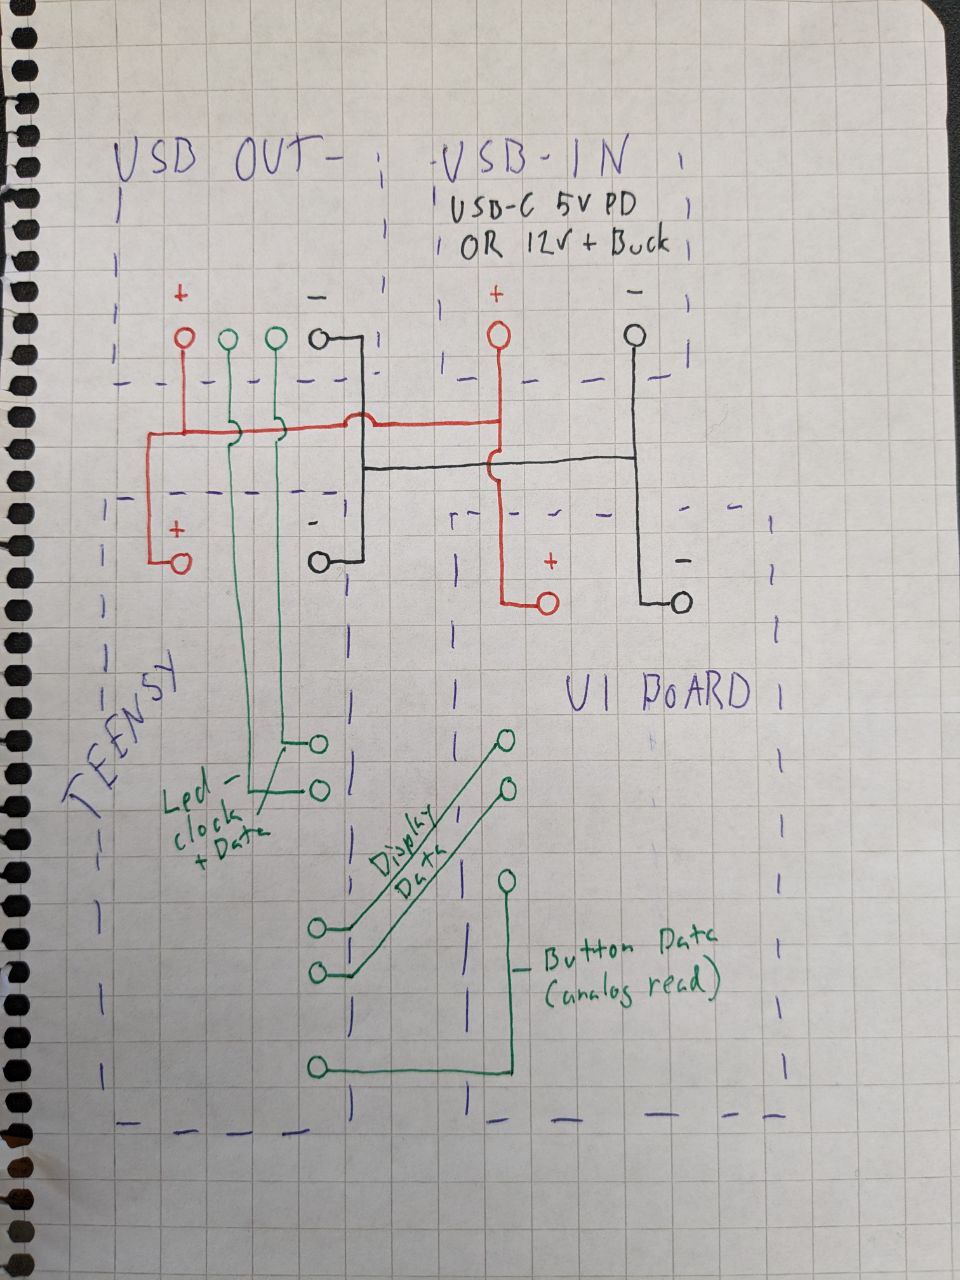 USB OUT
USB-IN
USB-C 5V PD
OR 12V + Buck
+
-
+
-
+
-
+
-
TEENSY
UI BOARD
Led
clock
+ Data
Display
Data
Button Data
(analog read)